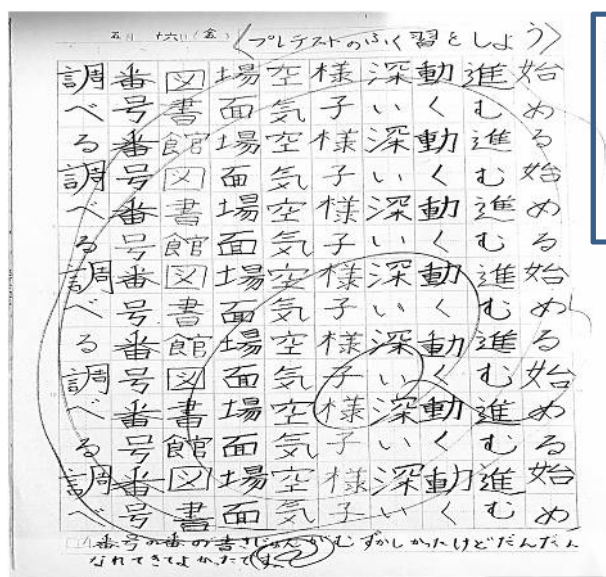 五月 十六日(金)〈プレテストのふく習をしよう〉
始める始める始める始める始め
進む進む進む進む進む進む進む
動く動く動く動く動く動く動く
深い深い深い深い深い深い深い
様子様子様子様子様子様子様子
空気空気空気空気空気空気空気
場面場面場面場面場面場面場面
図書館図書館図書館図書館図書
番号番号番号番号番号番号番号
調べる調べる調べる調べる調べ
番号の番の書きじゅんがむずかしかったけどだんだん
なれてきてよかったです。